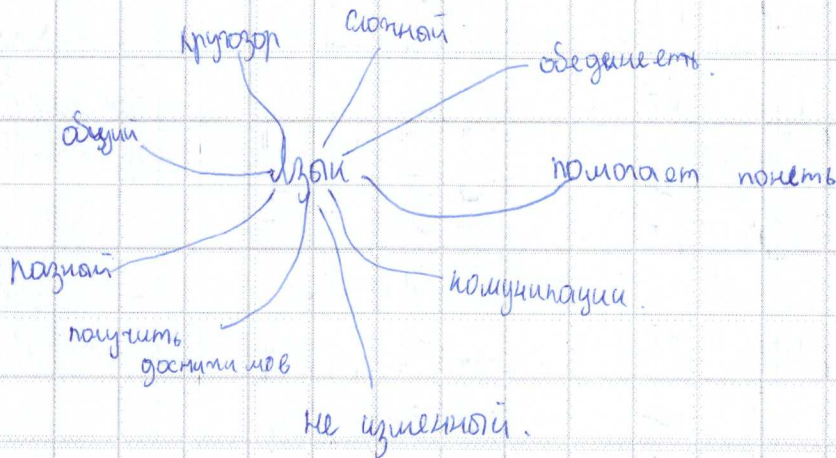 кругозор
сложный
обединееть.
общий
Язык
помогает понеть
разный
комуникации.
получить
не изменный.